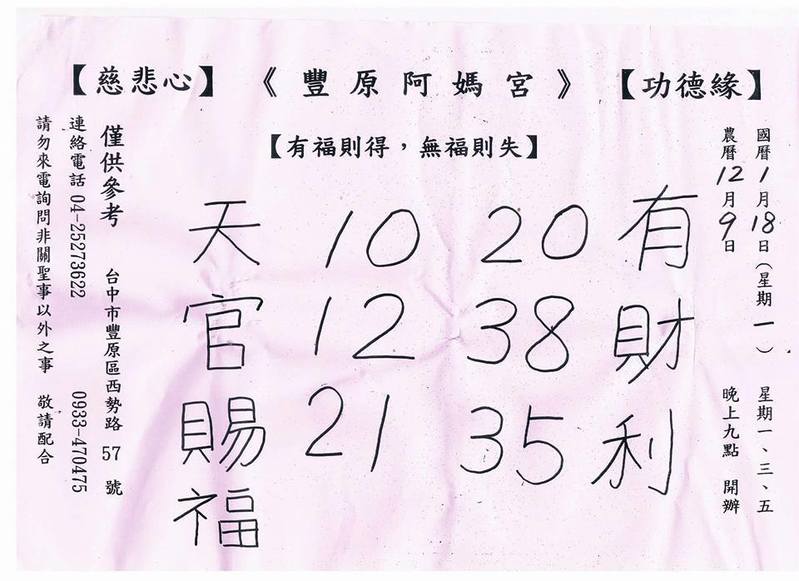 【慈悲心】 《豐原阿媽宮》 【功德緣】
【有福則得,無福則失】
國曆1月18日(星期一) 星期一、三、五
農曆12月9日 晚上九點 開辦
有財利
20 38 35
10 12 21
天官賜福
僅供參考 台中市豐原區西勢路 57 號
連絡電話 04-25273622 0933-470475
請勿來電詢問非關聖事以外之事 敬請配合